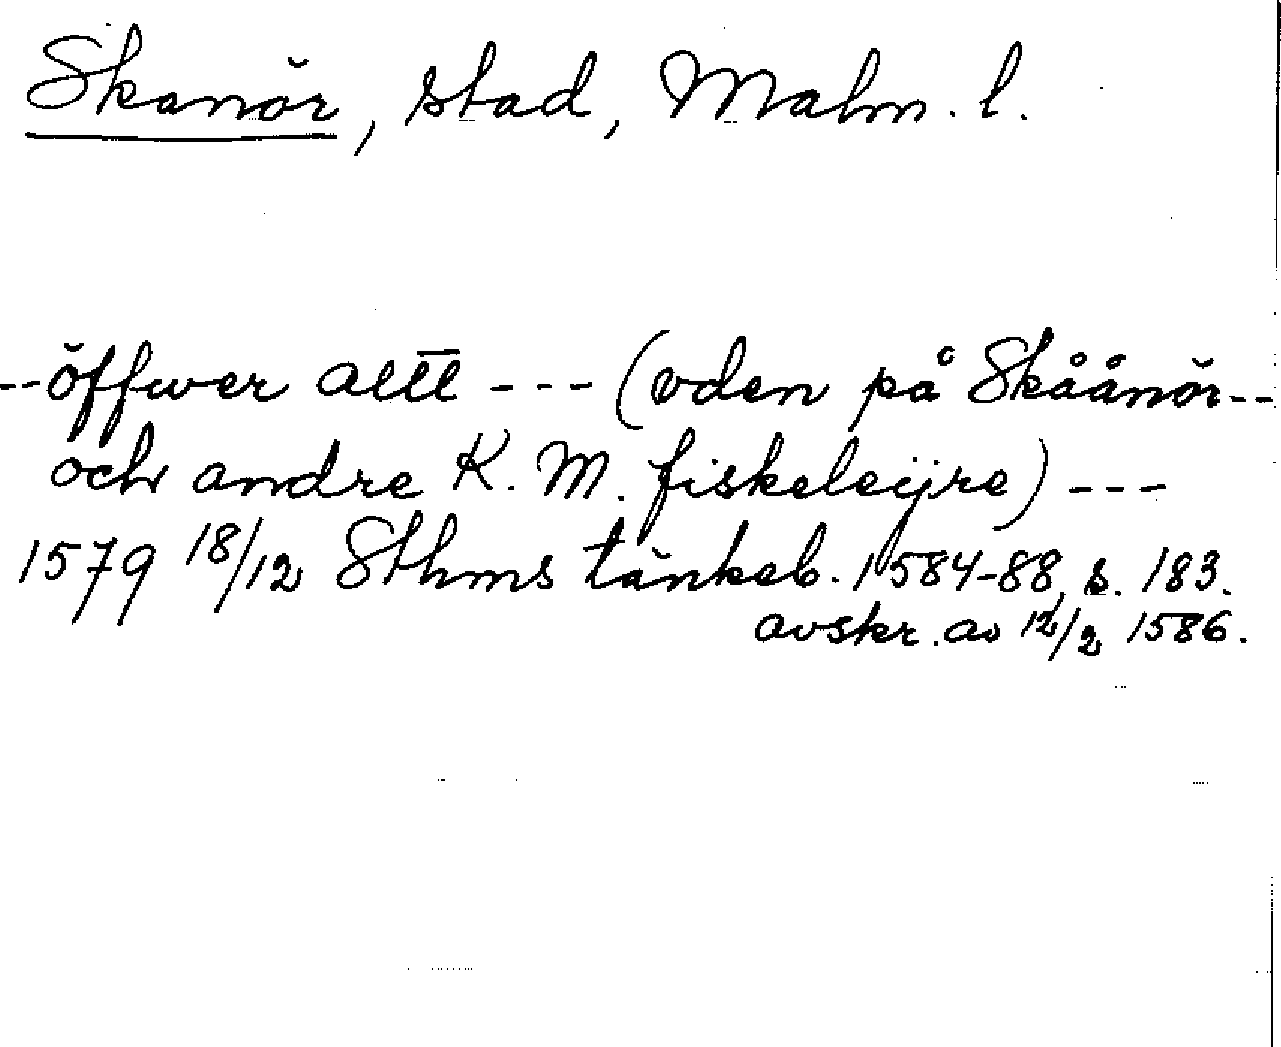 Skanör, stad, Malm. l.
--öffwer altt --- (vden på Skåånör--
och andre K. M. fiskeleijre) ---
1579 18/12 Sthms tänkeb. 1584-88, s. 183.
avskr. av 12/2 1586.